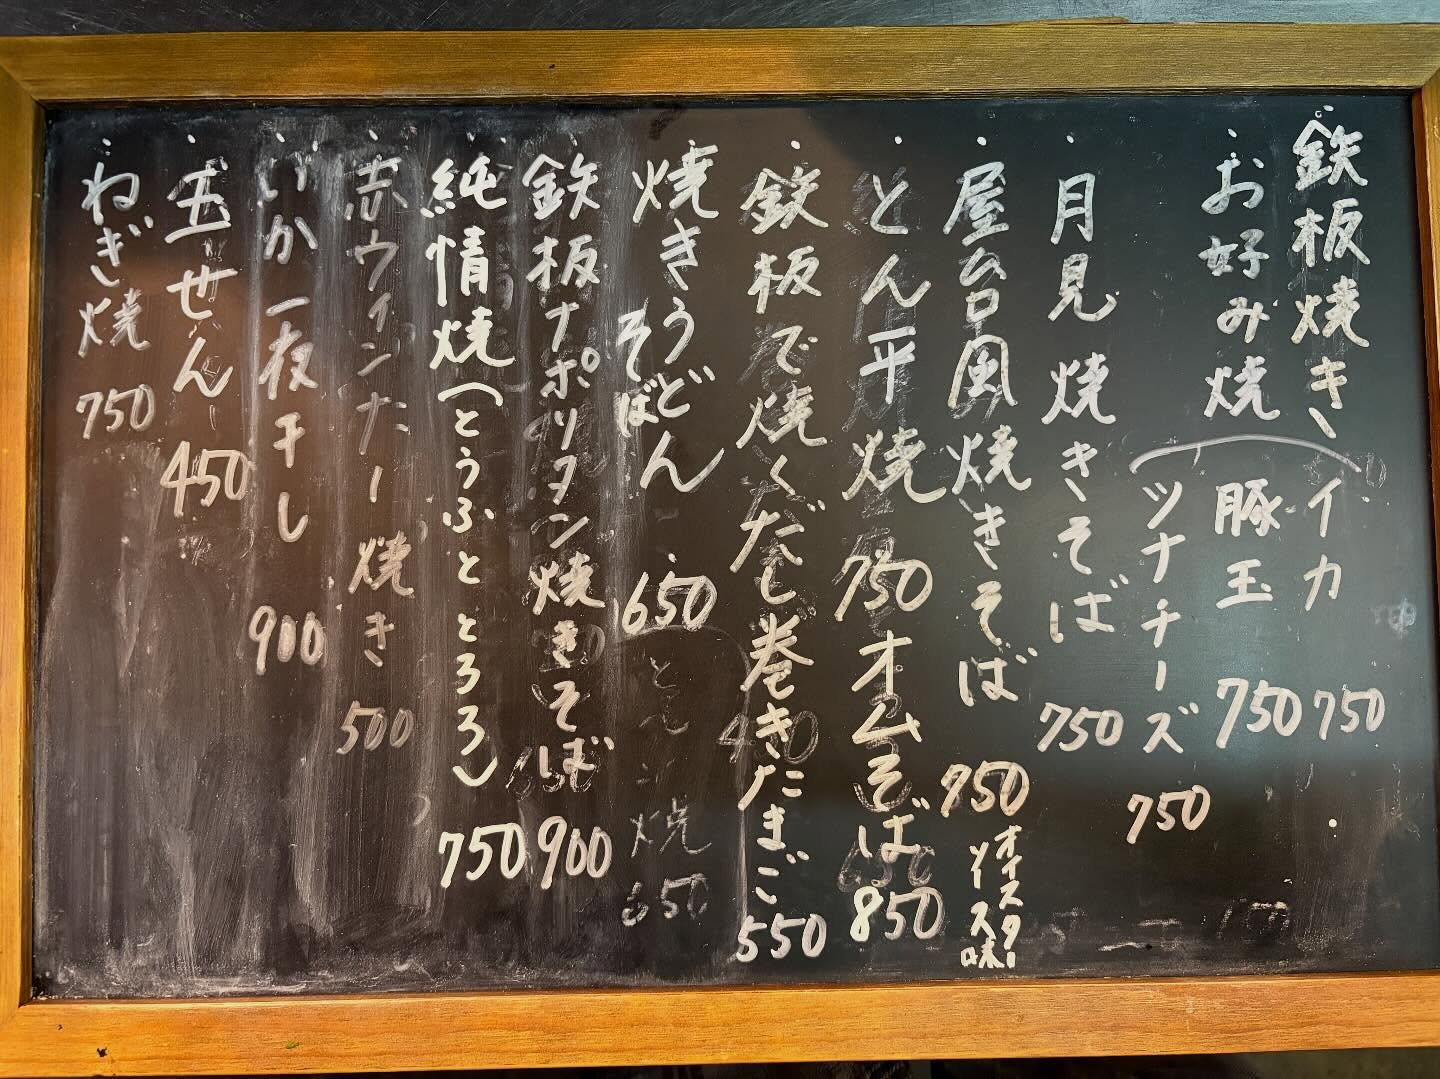 ・鉄板焼き
・お好み焼
イカ 750
豚玉 750
ツナチーズ 750
・月見焼きそば 750
・屋台風焼きそば 750
オイスターソース味
・とん平焼 750
オムそば 850
・鉄板で焼くだし巻きたまご 550
・焼きうどん
そば
・650
・鉄板ナポリタン焼きそば 900
・純情焼(とうふととろろ) 750
・赤ウィンナー焼き 500
・いか一夜干し 900
・玉せん 450
・ねぎ焼 750